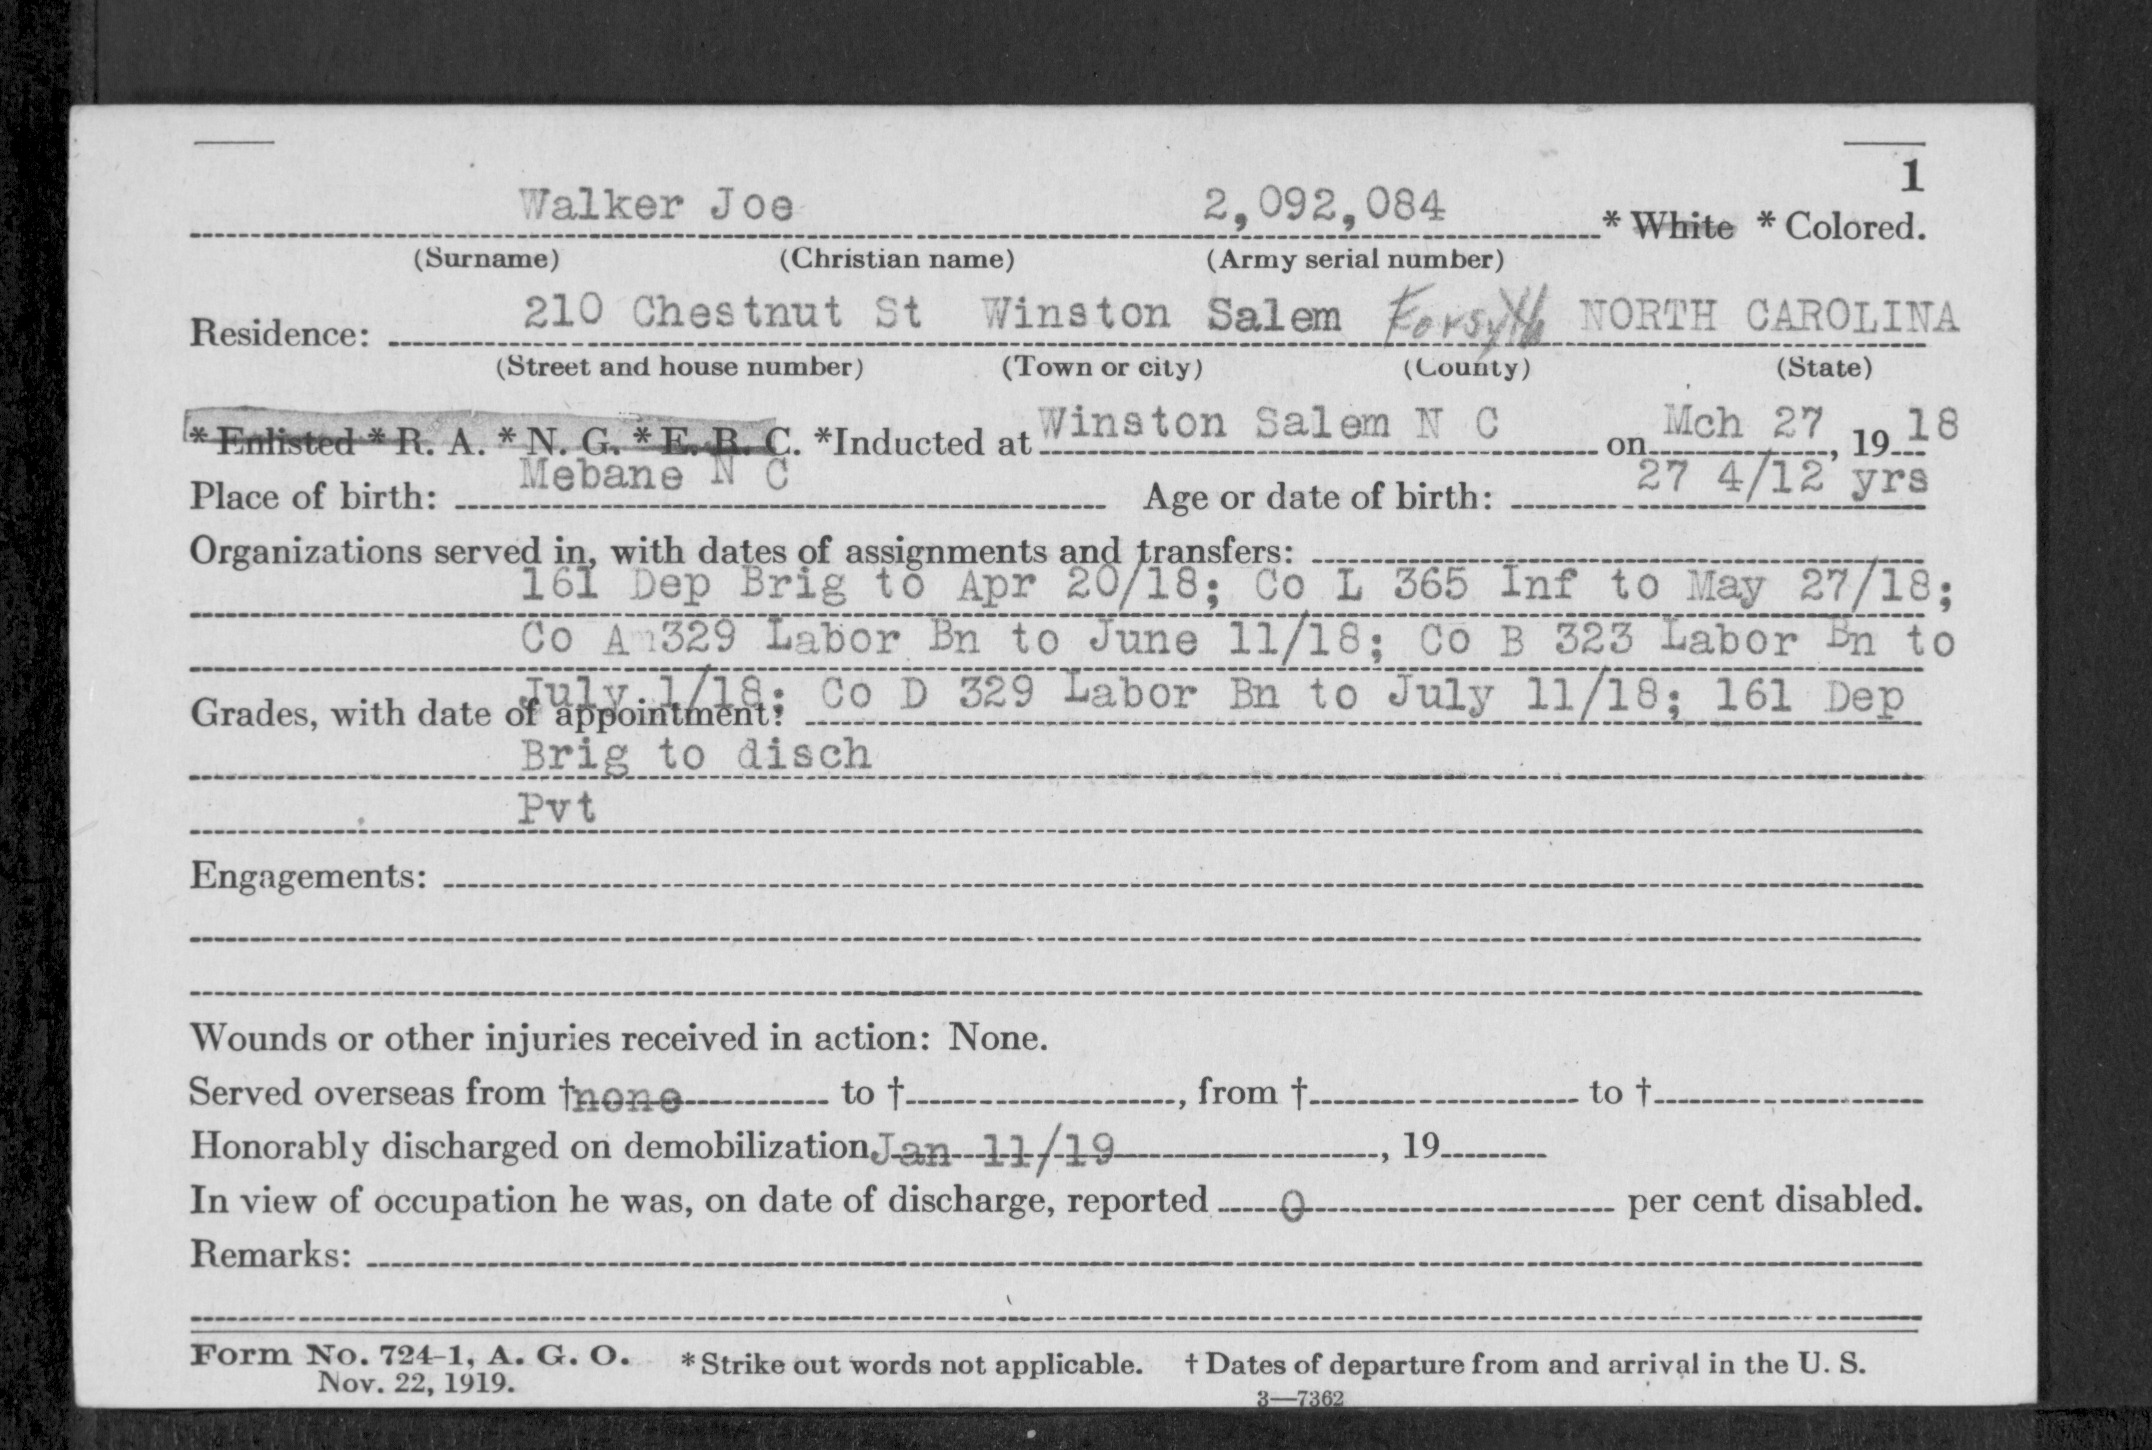 1
Walker Joe 2,092,084 * White * Colored.
(Surname) (Christian name) (Army serial number)
Residence: 210 Chestnut St Winston Salem Forsyth NORTH CAROLINA
(Street and house number) (Town or city) (County) (State)
* Enlisted * R. A. * N. G. * E. R. C. *Inducted at Winston Salem N C on Mch 27, 1918
Place of birth: Mebane N C Age or date of birth: 27 4/12 yrs
Organizations served in, with dates of assignments and transfers:
161 Dep Brig to Apr 20/18; Co L 365 Inf to May 27/18;
Co A 329 Labor Bn to June 11/18; Co B 323 Labor Bn to
July 1/18; Co D 329 Labor Bn to July 11/18; 161 Dep
Grades, with date of appointment:
Brig to disch
Pvt
Engagements:
Wounds or other injuries received in action: None.
Served overseas from †none to †, from † to †
Honorably discharged on demobilization Jan 11/19, 19
In view of occupation he was, on date of discharge, reported 0 per cent disabled.
Remarks:
Form No. 724-1, A. G. O. * Strike out words not applicable. † Dates of departure from and arrival in the U. S.
Nov. 22, 1919.
3—7362